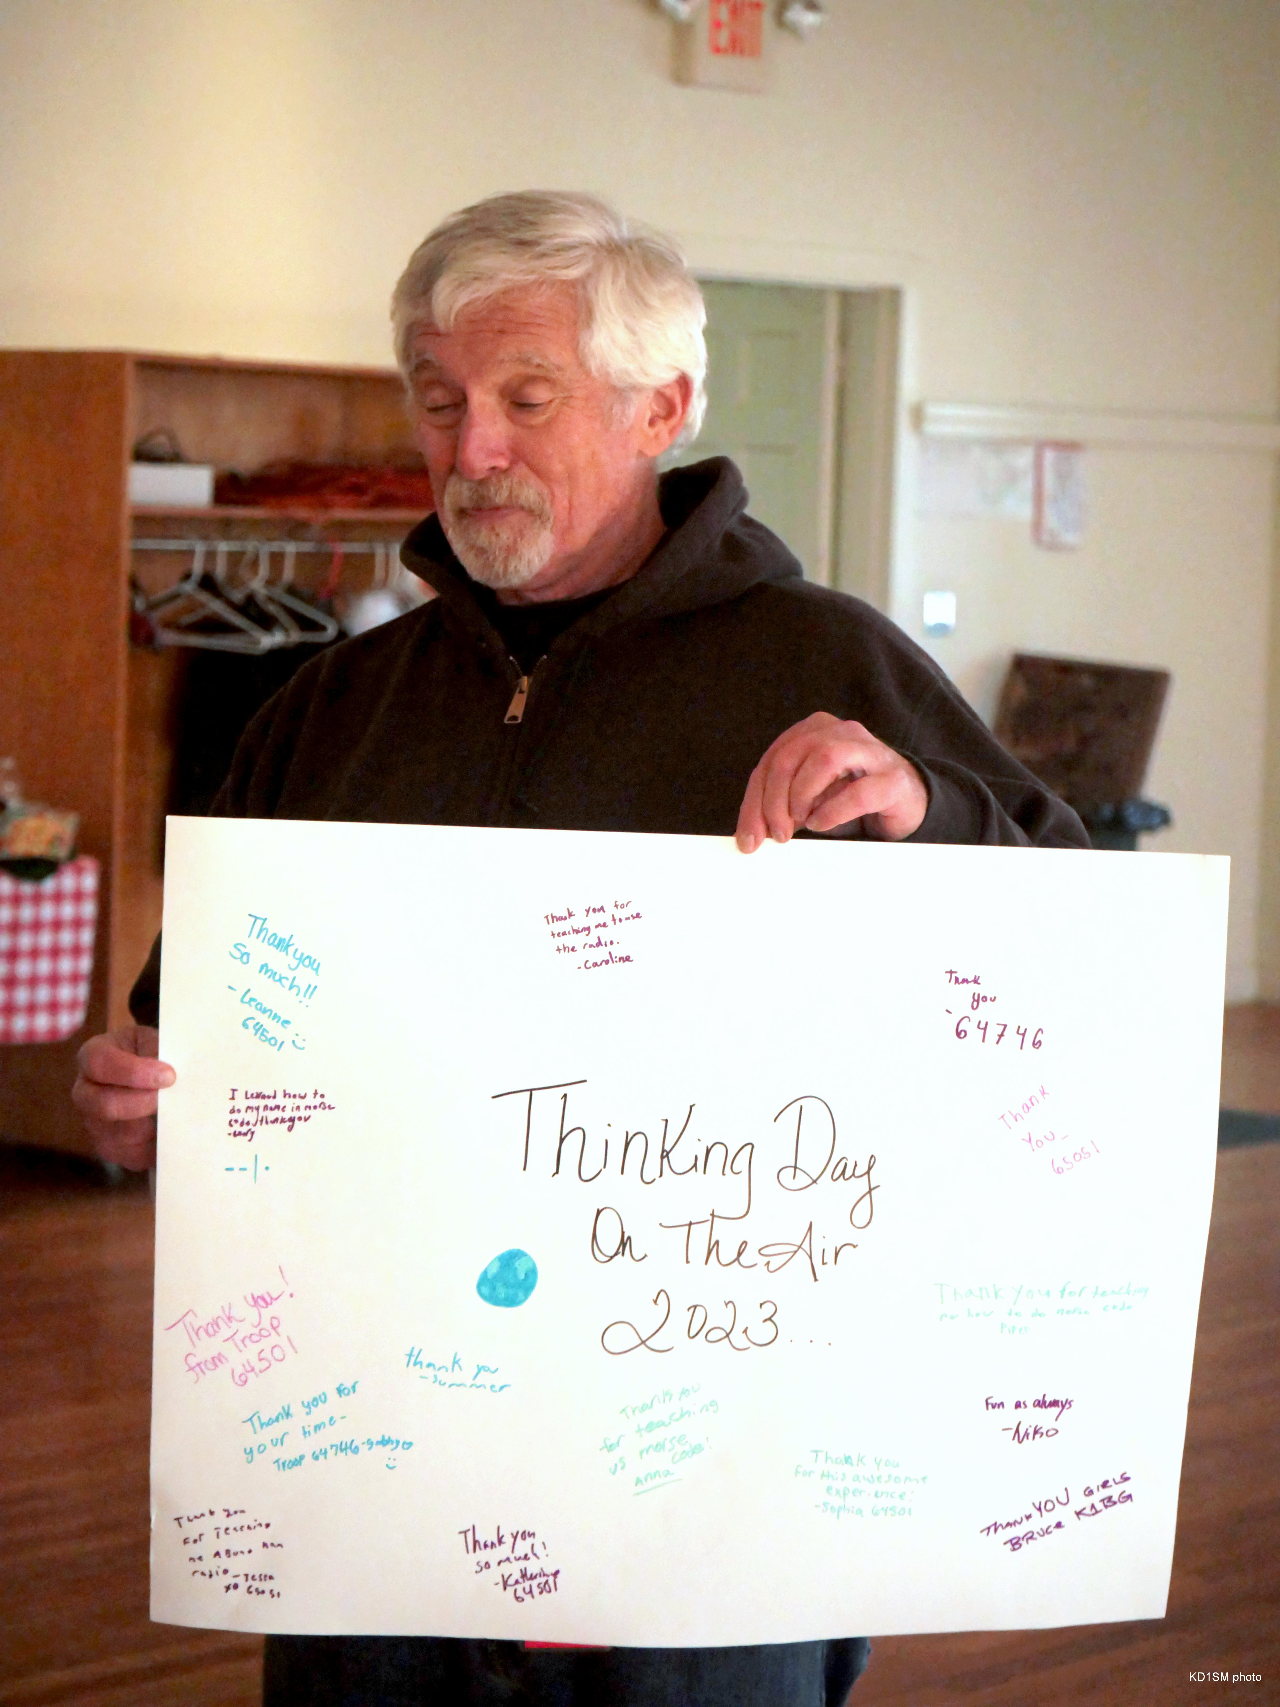 EXIT
Thank you for
teaching me to use
the radio.
-Caroline
Thankyou
So much!!
-Leanne
64501
Thank
you
64746
I Learnd how to
do my name in morse
code, thankyou
--|.
Thank
You-
65051
Thinking Day
On The Air
2023...
Thank you!
from Troop
64501
Thank you for teaching
me how to do morse code
thank you
-Summer
Thank you for
your time-
Troop 64746-Gabby
Thank you
for teaching
us morse
code!
Anna
Fun as always
-Niko
Thank you
for this awesome
experience!
-Sophia 64501
THANK YOU GIRLS
BRUCE K1BG
Thank you
For Teaching
me About Ham
radio-Tessa
xo 65051
Thank you
so much!
-Katherine
64501
KD1SM photo